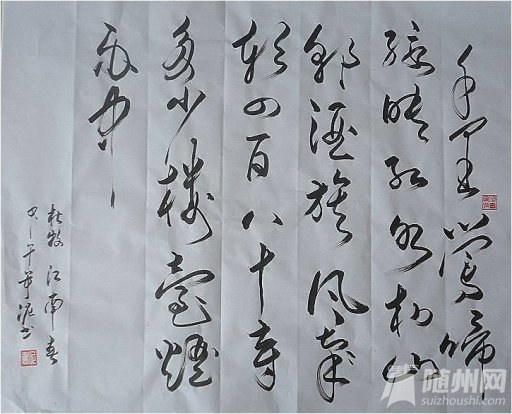 千里鶯啼
綠映紅水村山
郭酒旗風南
朝四百八十寺
多少樓臺煙
雨中
杜牧江南春
甲午年书
随州网
suizhoushi.com